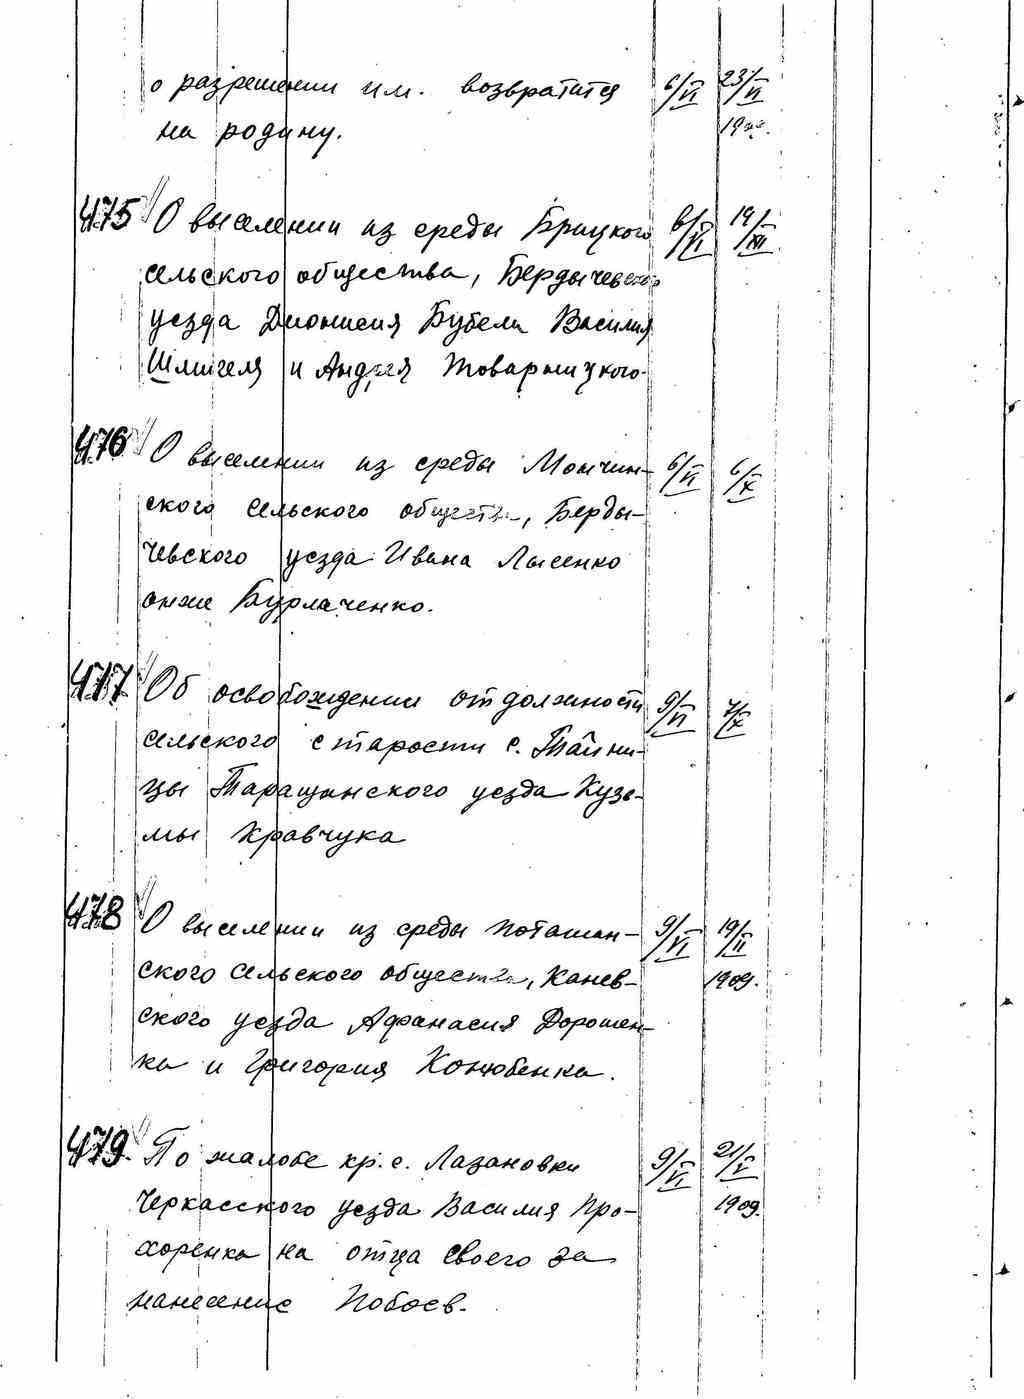 о разрешении им. возвратится 6/VI 23/VI
на родину. 19
475 О выселении из среды Брицкого 6/VI 19/XII
сельского общества, Бердычевского
уезда Дионисия Бубели Василия
Шлигеля и Андрея Товарницкого
476 О выселении из среды Мончин- 6/VI 6/X
ского сельского общества, Берды-
чевского уезда Ивана Лысенко
онже Бурлаченко.
477 Об освобождении от должности 9/VI 7/X
сельского старости с. Тайни-
цы Таращанского уезда Кузь-
мы Кравчука
478 О выселении из среды Поташин- 9/VI 19/II
ского сельского общества, Канев- 1909.
ского уезда Афанасия Дорошен-
ка и Григория Конюбенка.
479. По жалобе кр. с. Лазановки 9/VI 21/V
Черкасского уезда Василия Про- 1909.
хоренка на отца своего за
нанесение побоев.